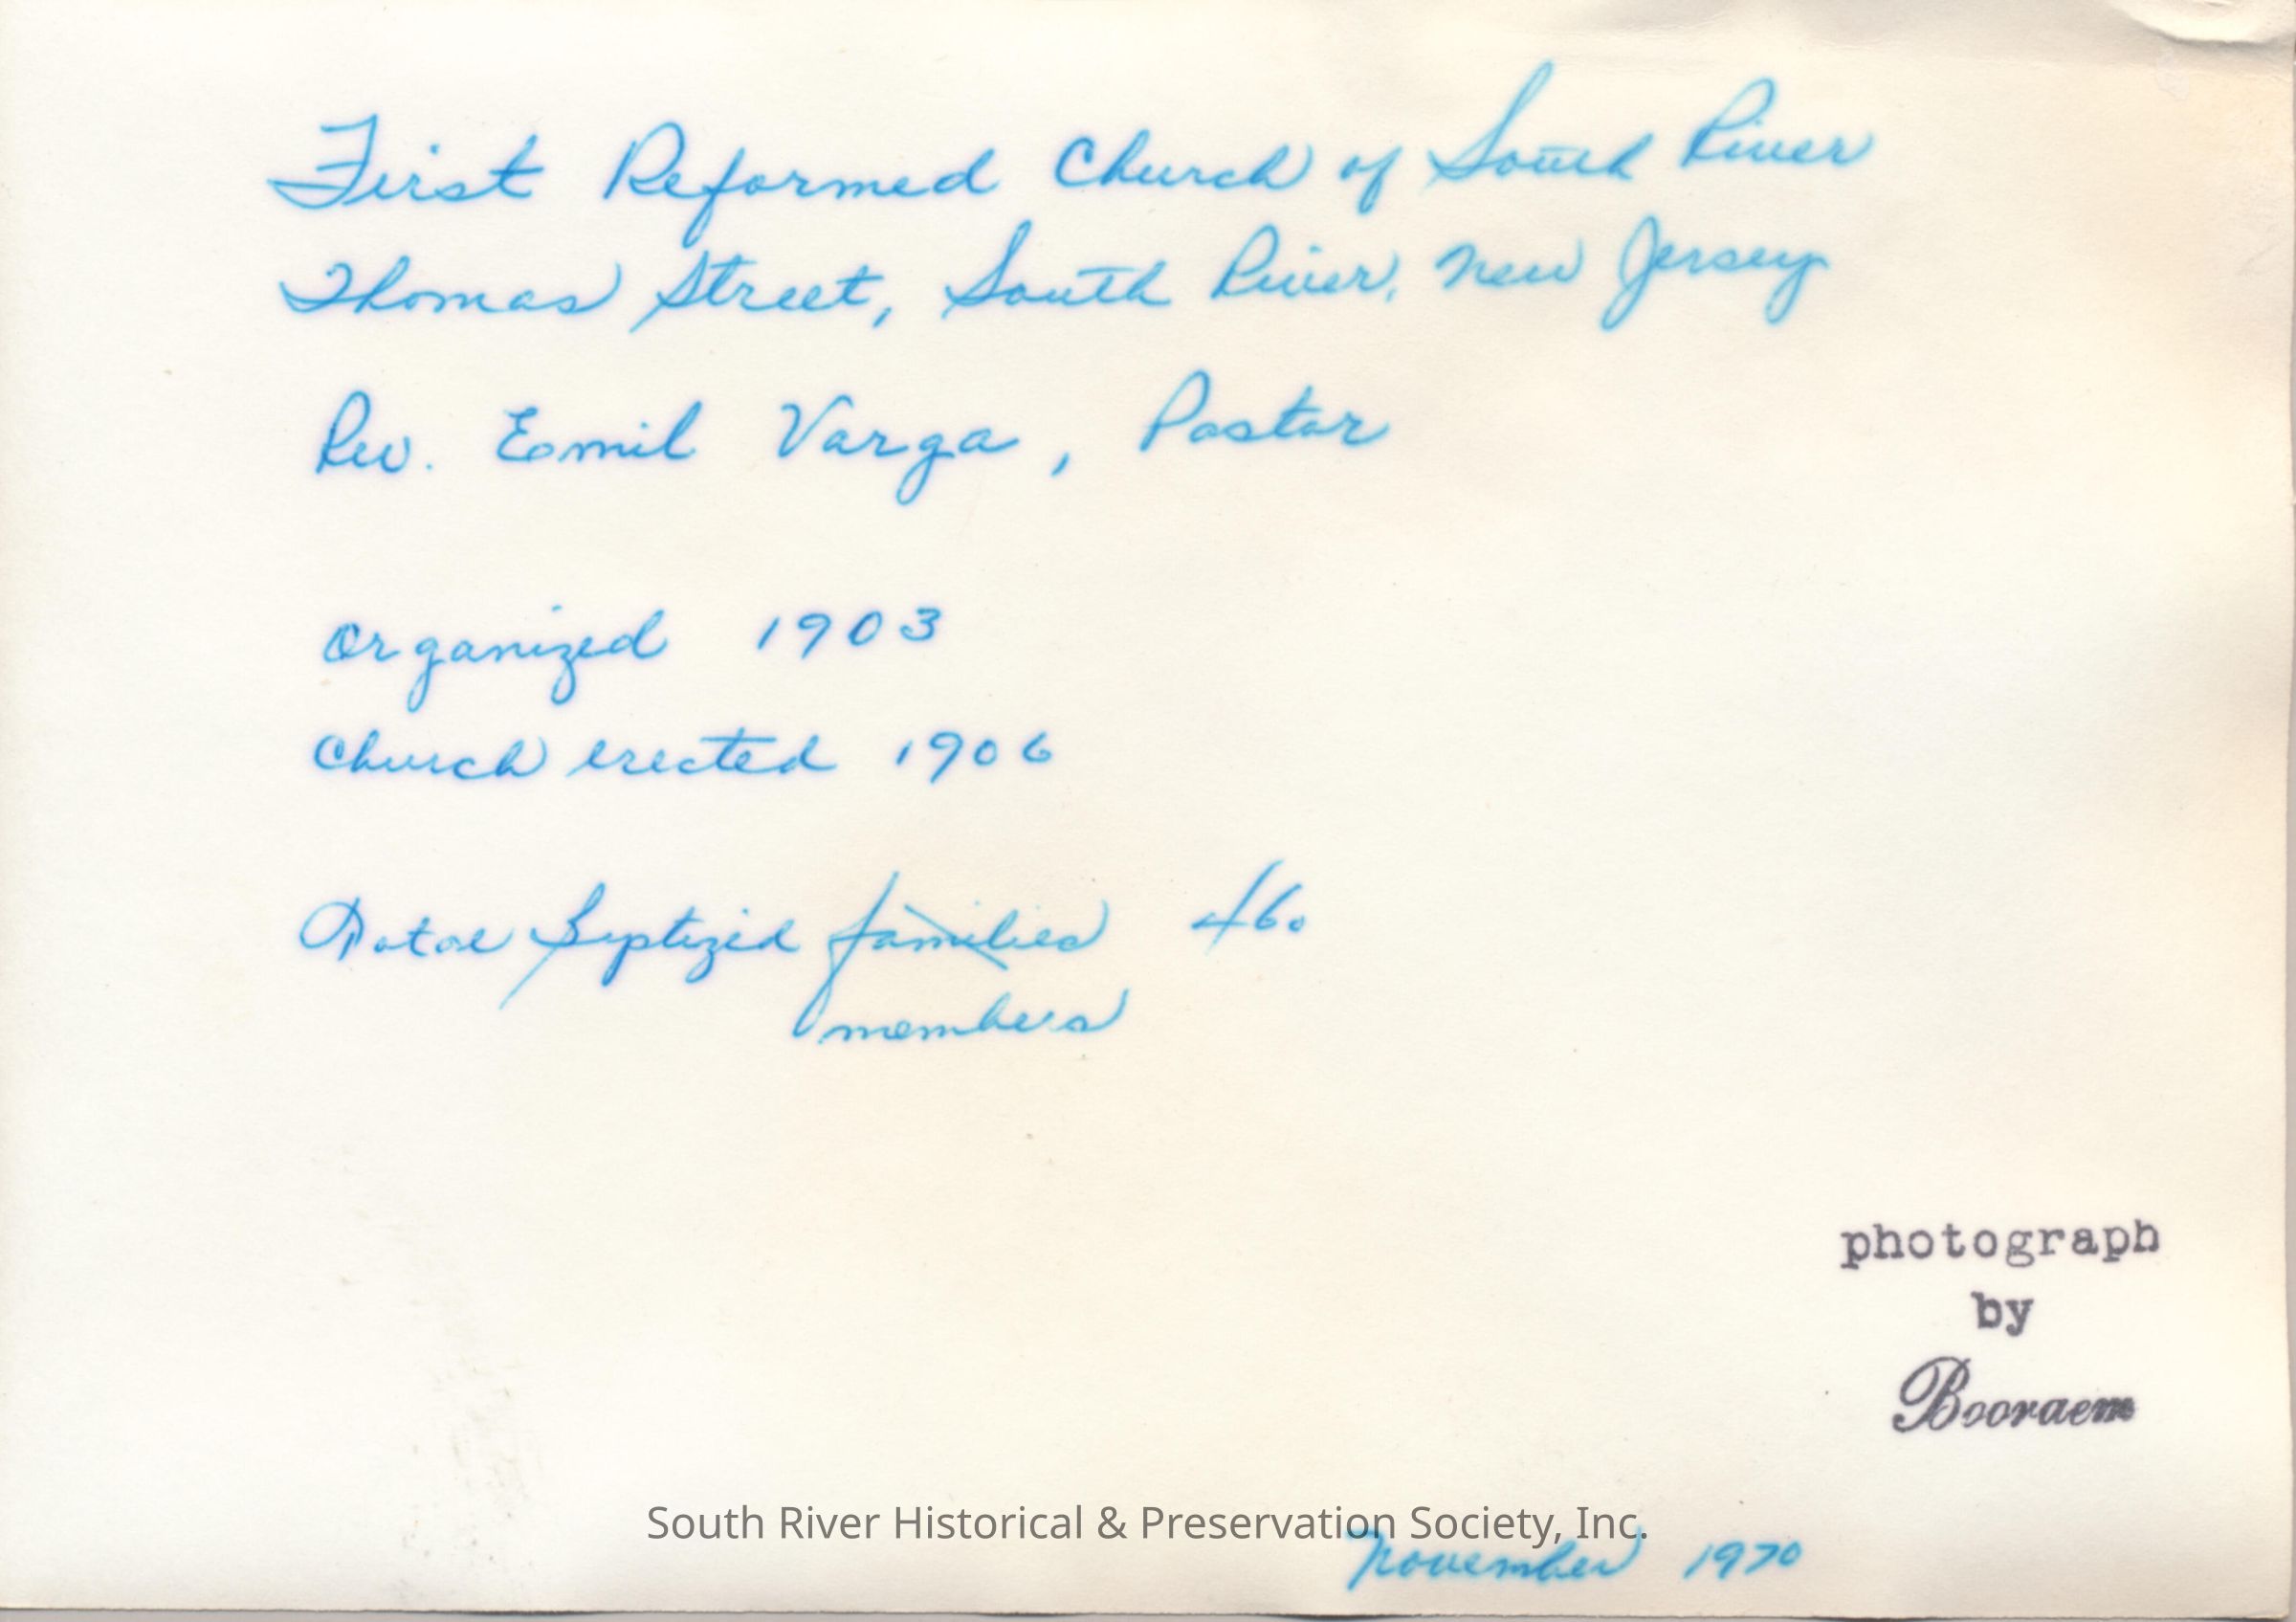 First Reformed Church of South River
Thomas Street, South River, New Jersey
Rev. Eomil Varga, Pastor
Organized 1903
Church erected 1906
families 460
members
photograph
by
Booraem
South River Historical & Preservation Society, Inc.
November 1970